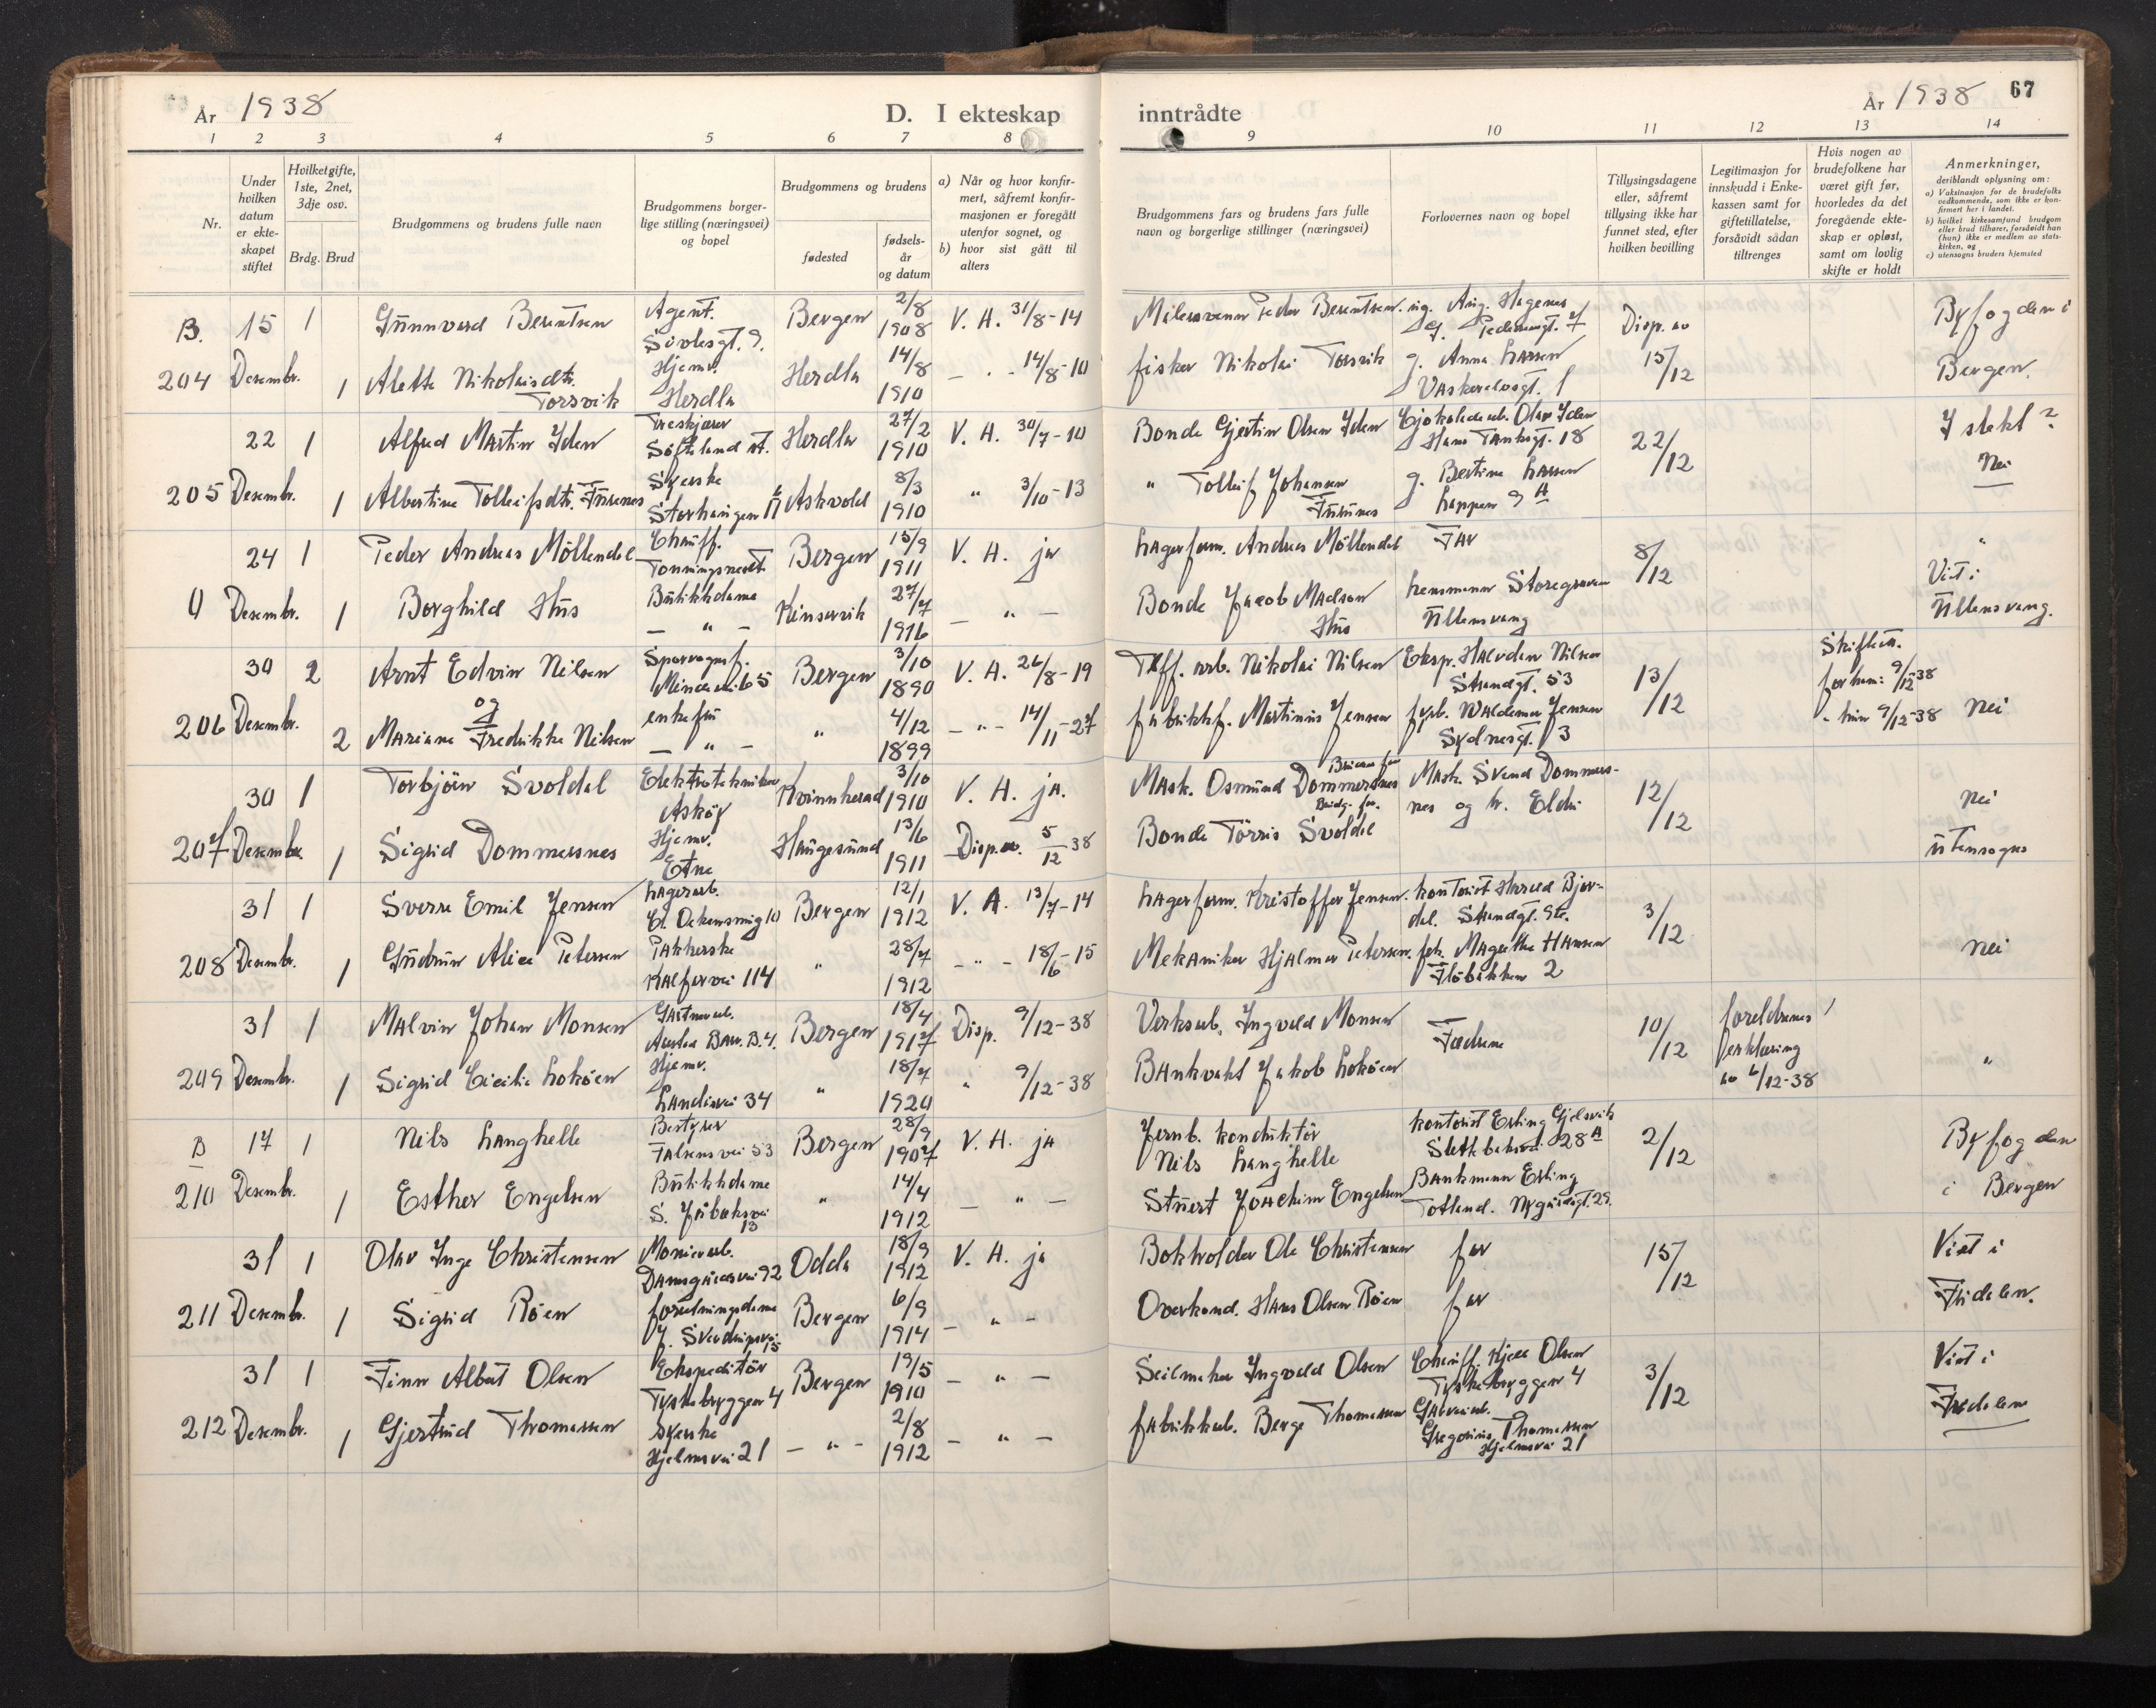 År 1938
D. I ekteskap
inntrådte
År 1938
67
1 2 3 4 5 6 7 8
9 10 11 12 13 14
Nr.
Under hvilken datum er ekteskapet stiftet
Hvilket gifte, 1ste, 2net, 3dje osv.
Brdg. Brud
Brudgommens og brudens fulle navn
Brudgommens borgerlige stilling (næringsvei) og bopel
Brudgommens og brudens
fødested
fødsels-år og datum
a) Når og hvor konfirmert, såfremt konfirmasjonen er foregått utenfor sognet, og
b) hvor sist gått til alters
Brudgommens fars og brudens fars fulle navn og borgerlige stillinger (næringsvei)
Forlovernes navn og bopel
Tillysingsdagene eller, såfremt tillysing ikke har funnet sted, efter hvilken bevilling
Legitimasjon for innskudd i Enkekassen samt for giftetillatelse, forsåvidt sådan tiltrenges
Hvis nogen av brudefolkene har været gift før, hvorledes da det foregående ekteskap er opløst, samt om lovlig skifte er holdt
Anmerkninger, deriblandt oplysning om:
a) Vaksinasjon for de brudefolks vedkommende, som ikke er konfirmert her i landet.
b) hvilket kirkesamfund brudgom eller brud tilhører, forsåvidt han (hun) ikke er medlem av statskirken, og
c) utensogns bruders hjemsted
B. 15 1 Gunnvard Berentsen Agent. Bergen 2/8 1908 V. H. 31/8-14 Peder Berentsen Disp. av Byfogden i
204 Desembr. 1 Alette Nikolaisdtr. Torsvik Hjemv. Herdla Herdla 14/8 1910 - " - 14/8-10 fisker Nikolai Torsvik g. Anna Larsen 15/12 Bergen.
22 1 Alfred Martin Yden Herdla 27/2 1910 V. H. 30/7-10 Bonde Gjertin Olsen Yden Olav Yden Hans Tanksgt. 18 22/12 I slekt?
205 Desembr. 1 Albertine Tolleifsdtr. Furenes Syerske Storhaugen Askvold 8/3 1910 " 3/10-13 " Tolleif Johansen Furenes g. Bertine Larsen Lappen 9 A Nei
24 1 Peder Andreas Möllendal Chauff. Bergen 15/9 1911 V. H. ja Lagerform. Andreas Möllendal Far 8/12 "
U Desembr. 1 Borghild Hus Butikkdame - " - Kinservik 27/7 1916 - " - Bonde Jacob Madson Hus Lensmann Storegraven Ullensvang Viet i Ullensvang.
30 2 Arnt Edvin Nilsen Sporvognsf. Bergen 3/10 1890 V. H. 26/8-19 Nikolai Nilsen Eksp. Halvdan Nilsen Strandgt. 53 13/12 for ham: 9/12-38
206 Desembr. 2 og Mariane Fredrikke Nilsen enkefru - " - " 4/12 1899 - " - 14/11-27 fabrikkf. Martinius Jensen Waldemar Jensen Sydnesgt. 13 " hun 9/12-38 Nei
30 1 Torbjörn Svoldal Elektrotekniker Asköy Kvinnherad 3/10 1910 V. H. ja. Mask. Osmund Dommersnes Mask. Svend Dommersnes og hr. 12/12 Nei
207 Desembr. 1 Sigrid Dommersnes Hjemv. Etne Haugesund 13/6 1911 Disp. av. 5/12 38 Bonde Törris Svoldal utensogns
31 1 Sverre Emil Jensen Lagerarb. Bergen 12/1 1912 V. H. 13/7-14 Lagerform. Kristoffer Jensen. kontorist Harald Bjordal. 3/12
208 Desembr. 1 Gudrun Alice Petersen Pakkerske Kalfarvei 114 " 28/7 1912 - " - 18/6-15 Mekaniker Hjalmar Petersen. Magrethe Hansen Flöbakken 2 Nei
31 1 Malvin Johan Monsen Bergen 18/4 1917 Disp. 9/12-38 Verksarb. Ingvald Monsen Fædrene 10/12 foreldrenes erklæring av 6/12-38
209 Desembr. 1 Sigrid Cicilie Loköen Hjemv. Landåsvei 34 " 18/7 1920 " 9/12-38 Bankvakt Jakob Loköen "
B 17 1 Nils Langhelle Bestyrer Falsens vei 53 Bergen 28/9 1907 V. H. ja Jernb. konduktör Nils Langhelle kontorist Erling Gjelsvik 28 A 2/12 Byfogden
210 Desembr. 1 Esther Engelsen Butikkdame 13 " 14/4 1912 - " - Stuert Joachim Engelsen Bankmann Erling Totland. Nygårdsgt. 29. i Bergen
31 1 Olav Inge Christensen Damsgårdsvei 92 Odda 18/9 1912 V. H. ja Bokholder Ole Christensen far 15/12 Viet i
211 Desembr. 1 Sigrid Röen forretningsdame J. Sverdrupsvei 15 Bergen 6/9 1914 - " - Overkond. Hans Olsen Röen far Fridalen.
31 1 Finn Albert Olsen Ekspeditör Tyskebryggen 4 Bergen 19/5 1910 - " - Seilmaker Ingvald Olsen Chauff. Kjell Olsen Tyskebryggen 4 3/12 Viet i
212 Desembr. 1 Gjertrud Thomassen Syerske Hjelmsvei 21 - " - 2/8 1912 - " - fabrikkarb. Berge Thomassen Gregorius Thomassen Hjelmsvei 21 Fridalen